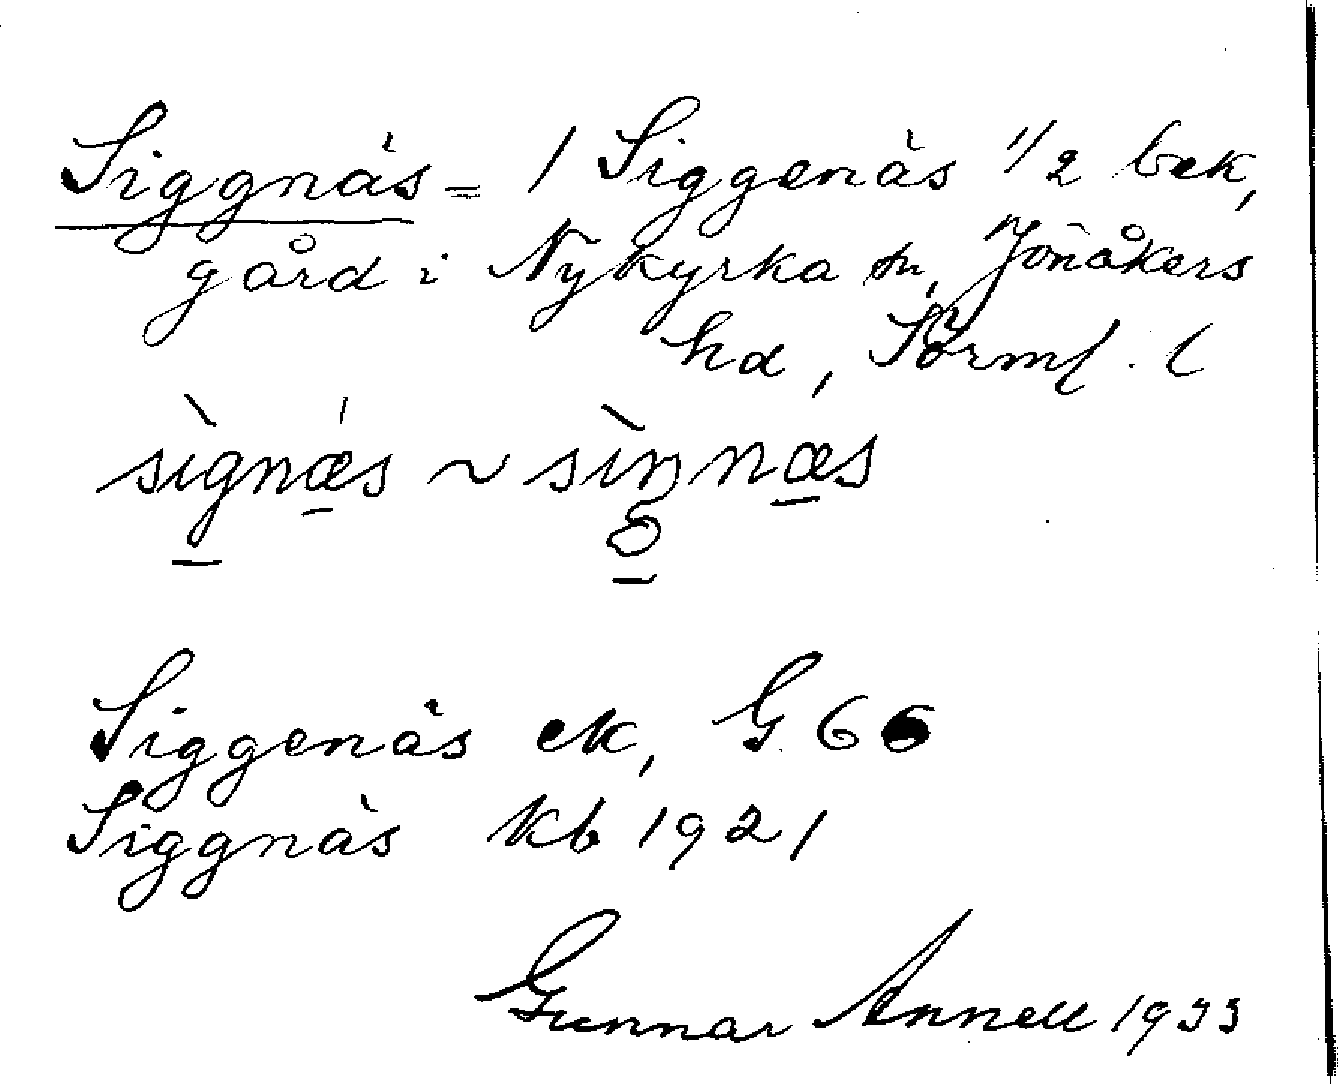 Siggnäs = 1 Siggenäs 1/2 bek,
gård i Nykyrka sn, Jönåkers
hd, Sörml. l
sìgnǽs ~ sìŋnæs
Siggenäs ek, G 66
Siggnäs kb 1921
Gunnar Annell 1933